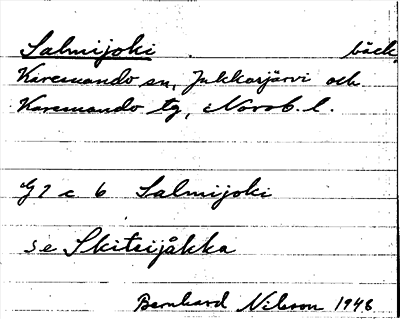 Salmijoki bäck
Karesuando sn, Jukkasjärvi och
Karesuando tg, Norrb. l.
G7 c 6 Salmijoki
se Skiteijåkka
Bernhard Nilsson 1946